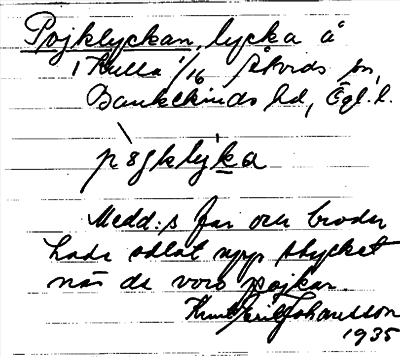 Pojklyckan, lycka å
Kulla 1/16 Åtvids sn,
Bankekinds hd, Ögl. l.
pògklỳka
Medd:s far och broder
hade odlat upp stycket
när de voro pojkar.
Knut Erik Johansson
1935